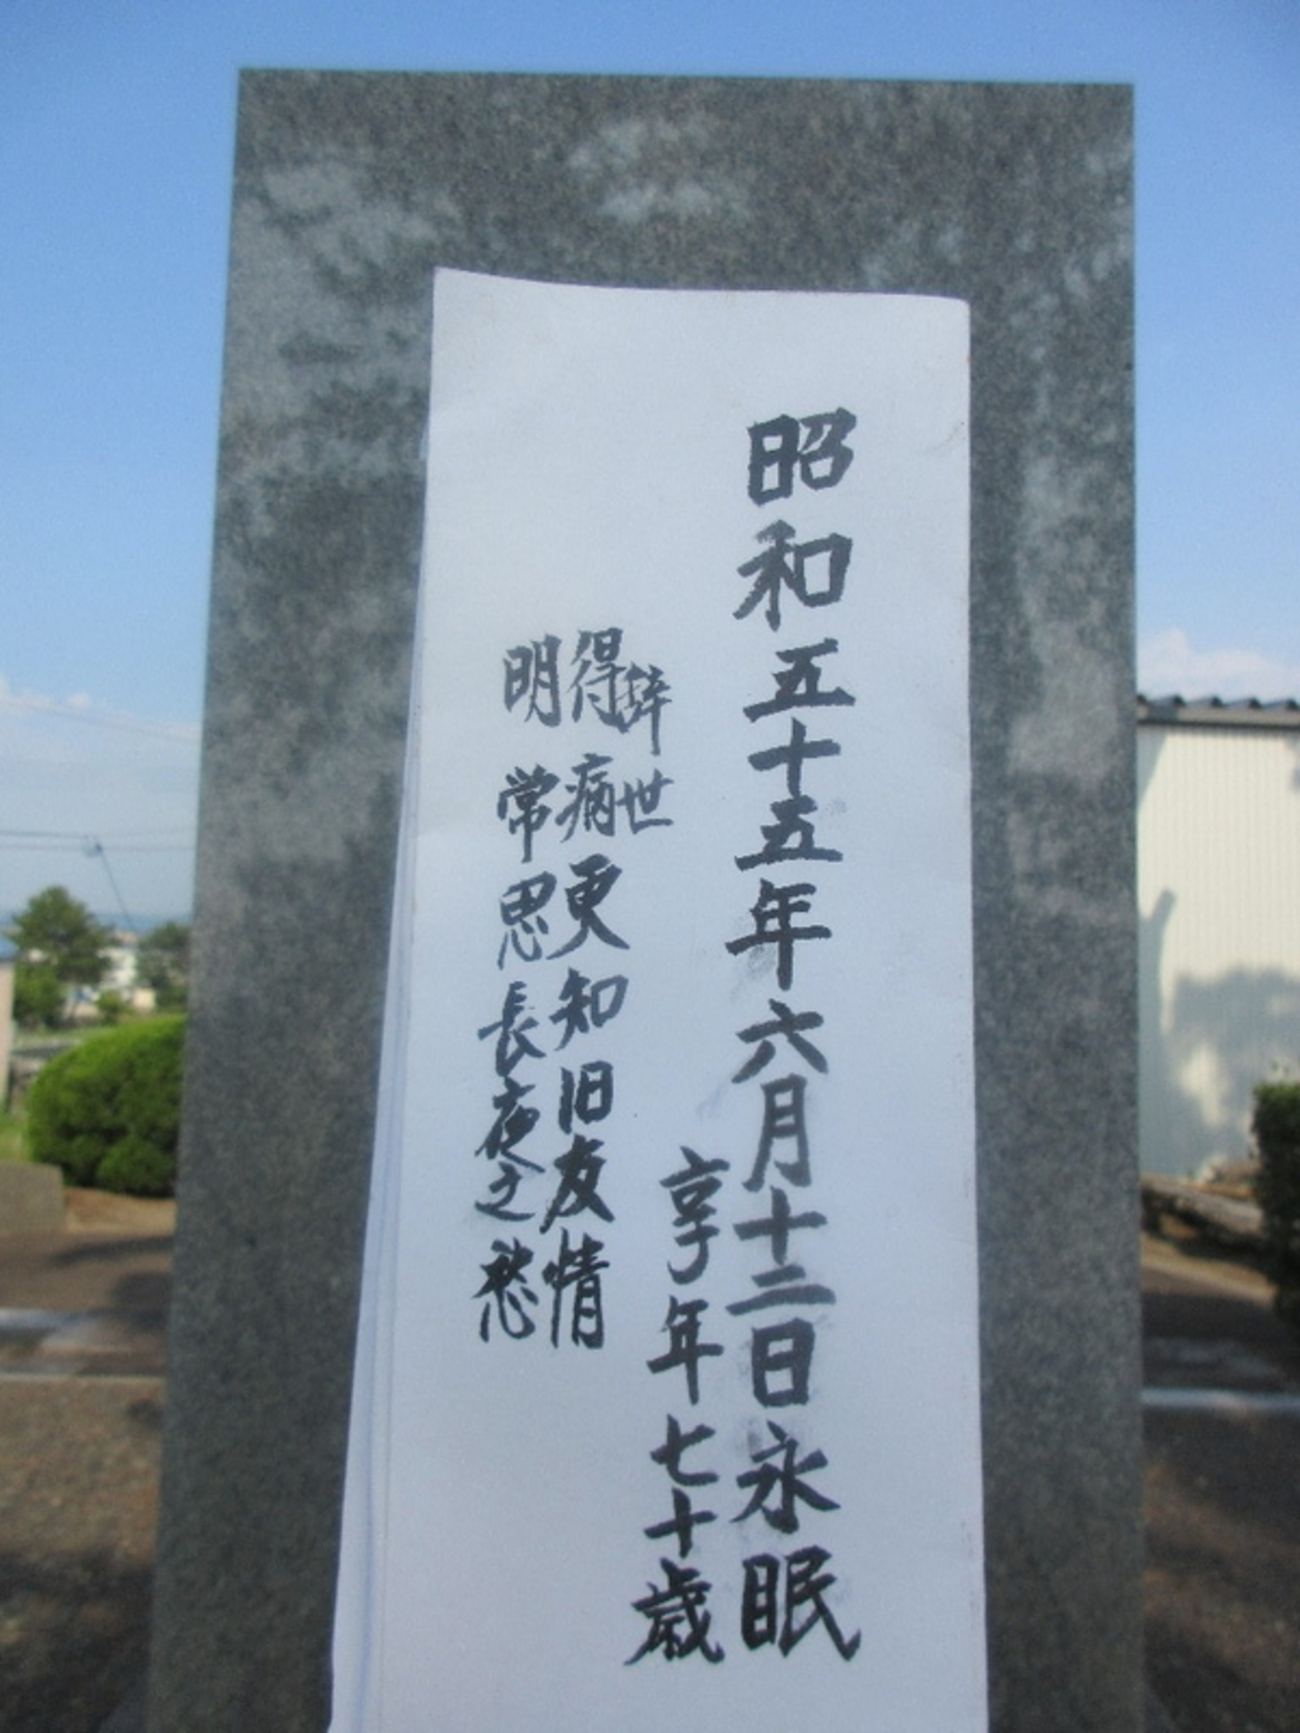 昭和五十五年六月十二日永眠
享年七十歳
辞世
得病更知旧友情
明常思長夜之愁